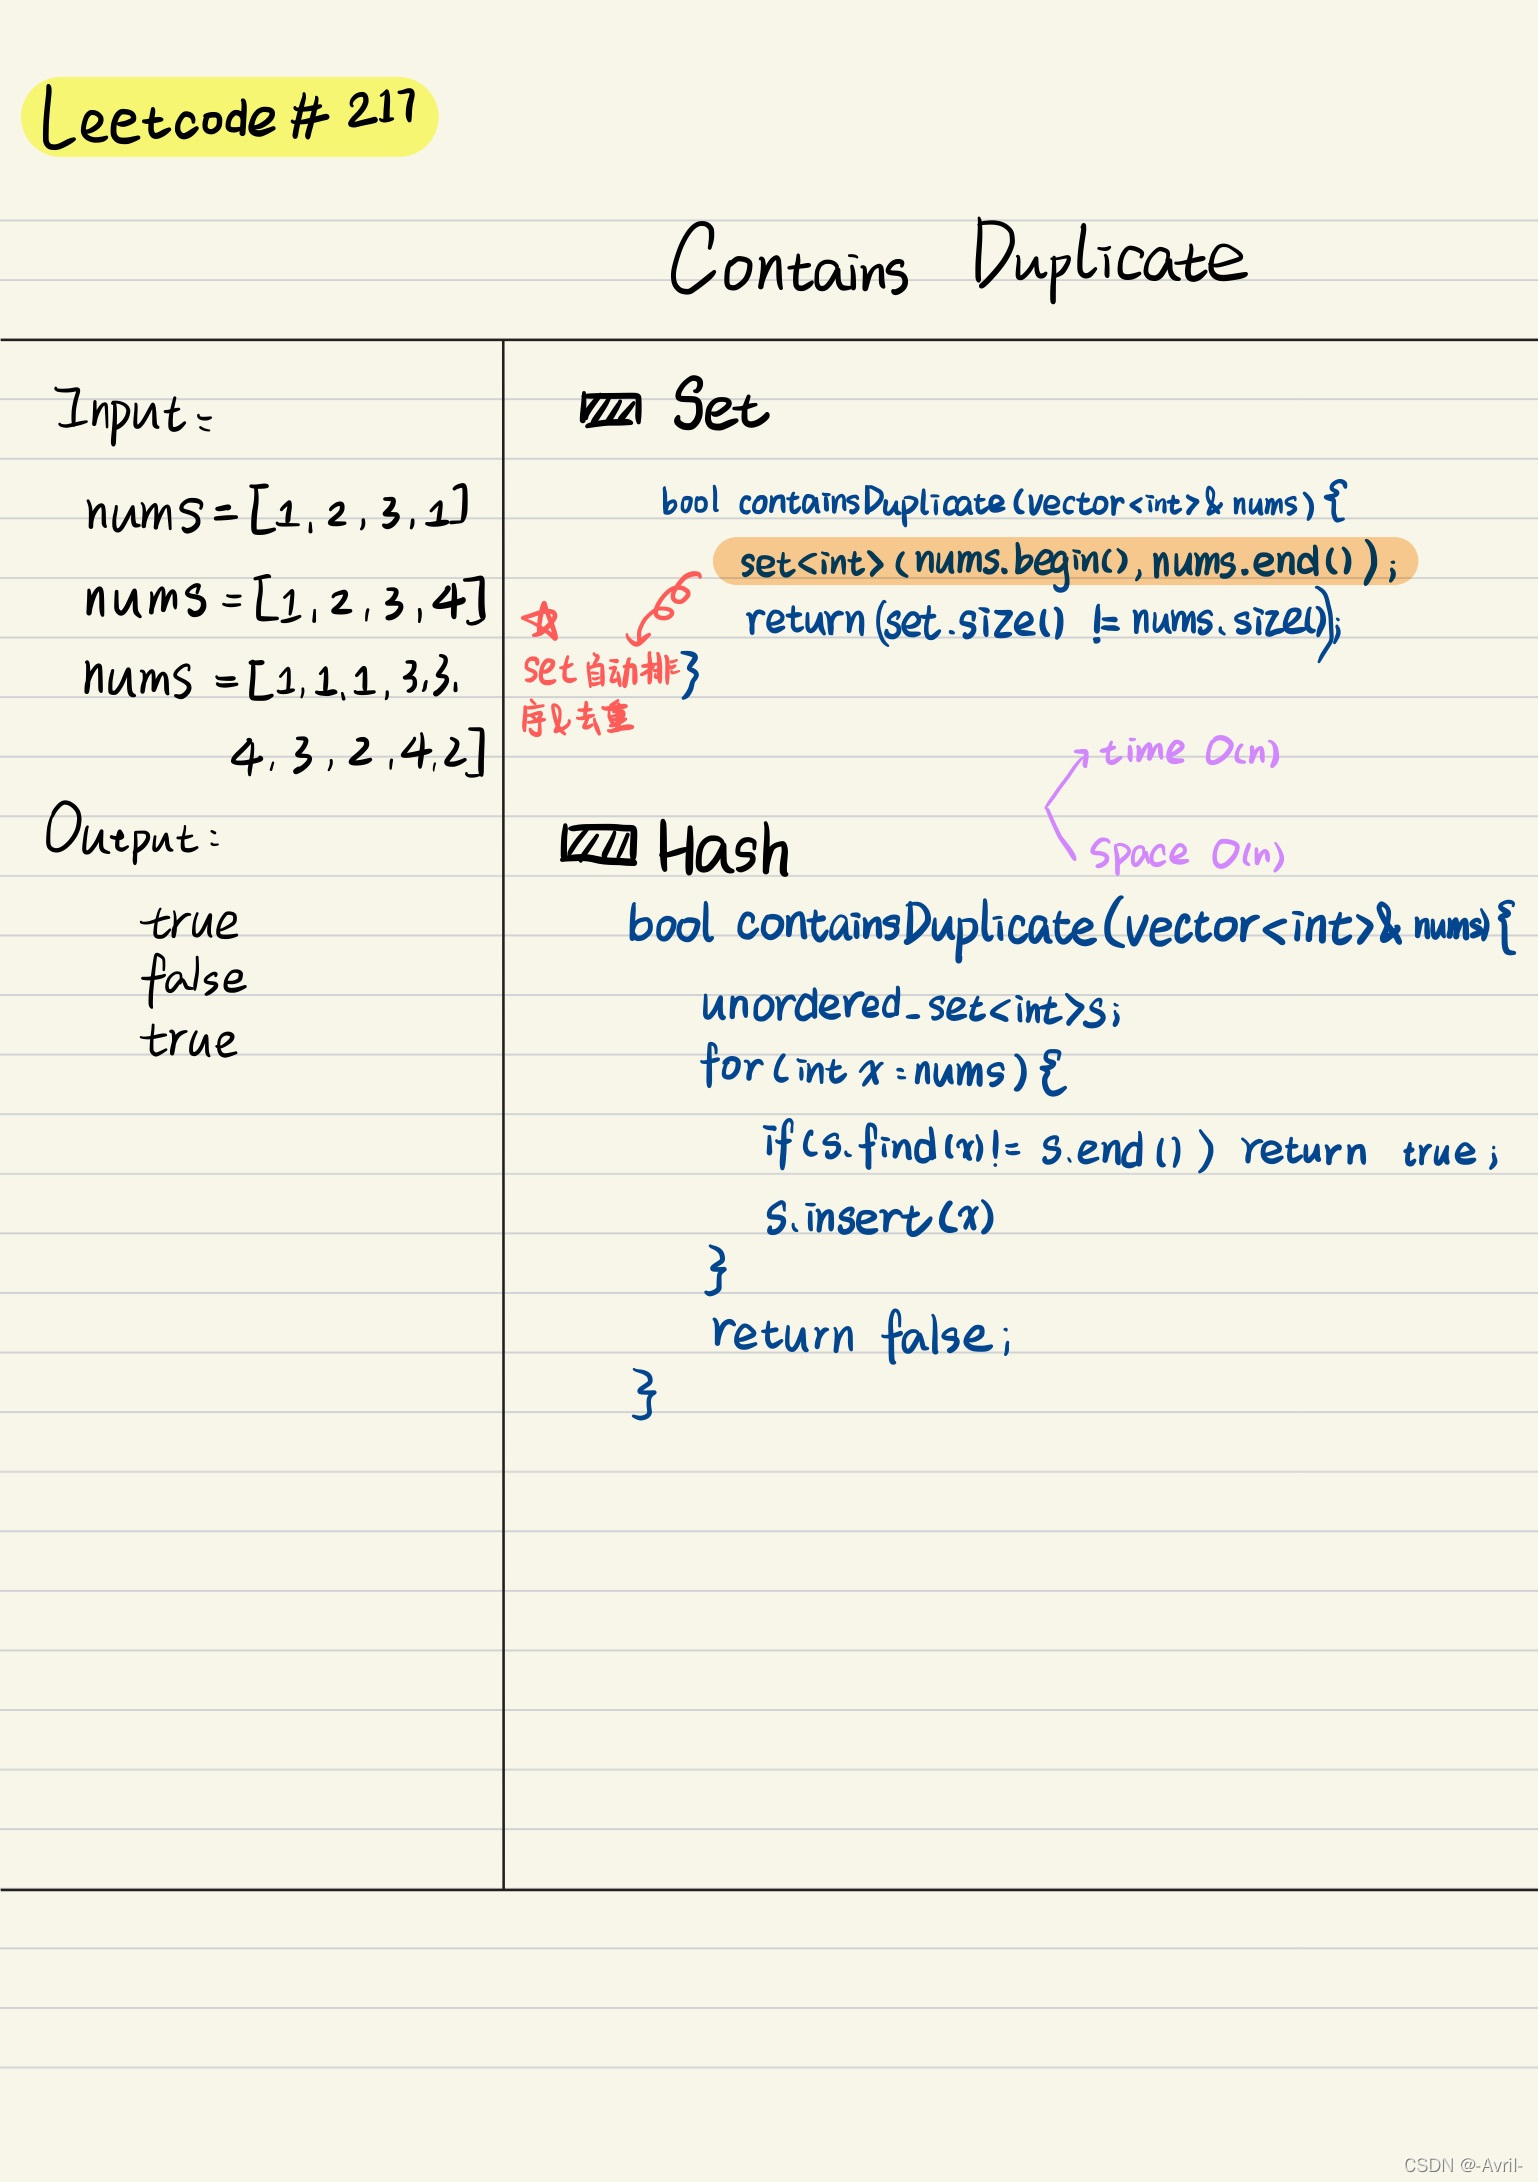 Leetcode # 217
Contains Duplicate
Input:
nums = [1, 2, 3, 1]
nums = [1, 2, 3, 4]
nums = [1, 1, 1, 3, 3,
4, 3, 2, 4, 2]
Output:
true
false
true
Set
bool containsDuplicate(vector<int>& nums){
set<int>(nums.begin(), nums.end());
return(set.size() != nums.size());
}
set自动排
序&去重
time O(n)
Space O(n)
Hash
bool containsDuplicate(vector<int>& nums){
unordered_set<int>s;
for(int x:nums){
if(s.find(x)!= s.end()) return true;
s.insert(x)
}
return false;
}
CSDN @-Avril-